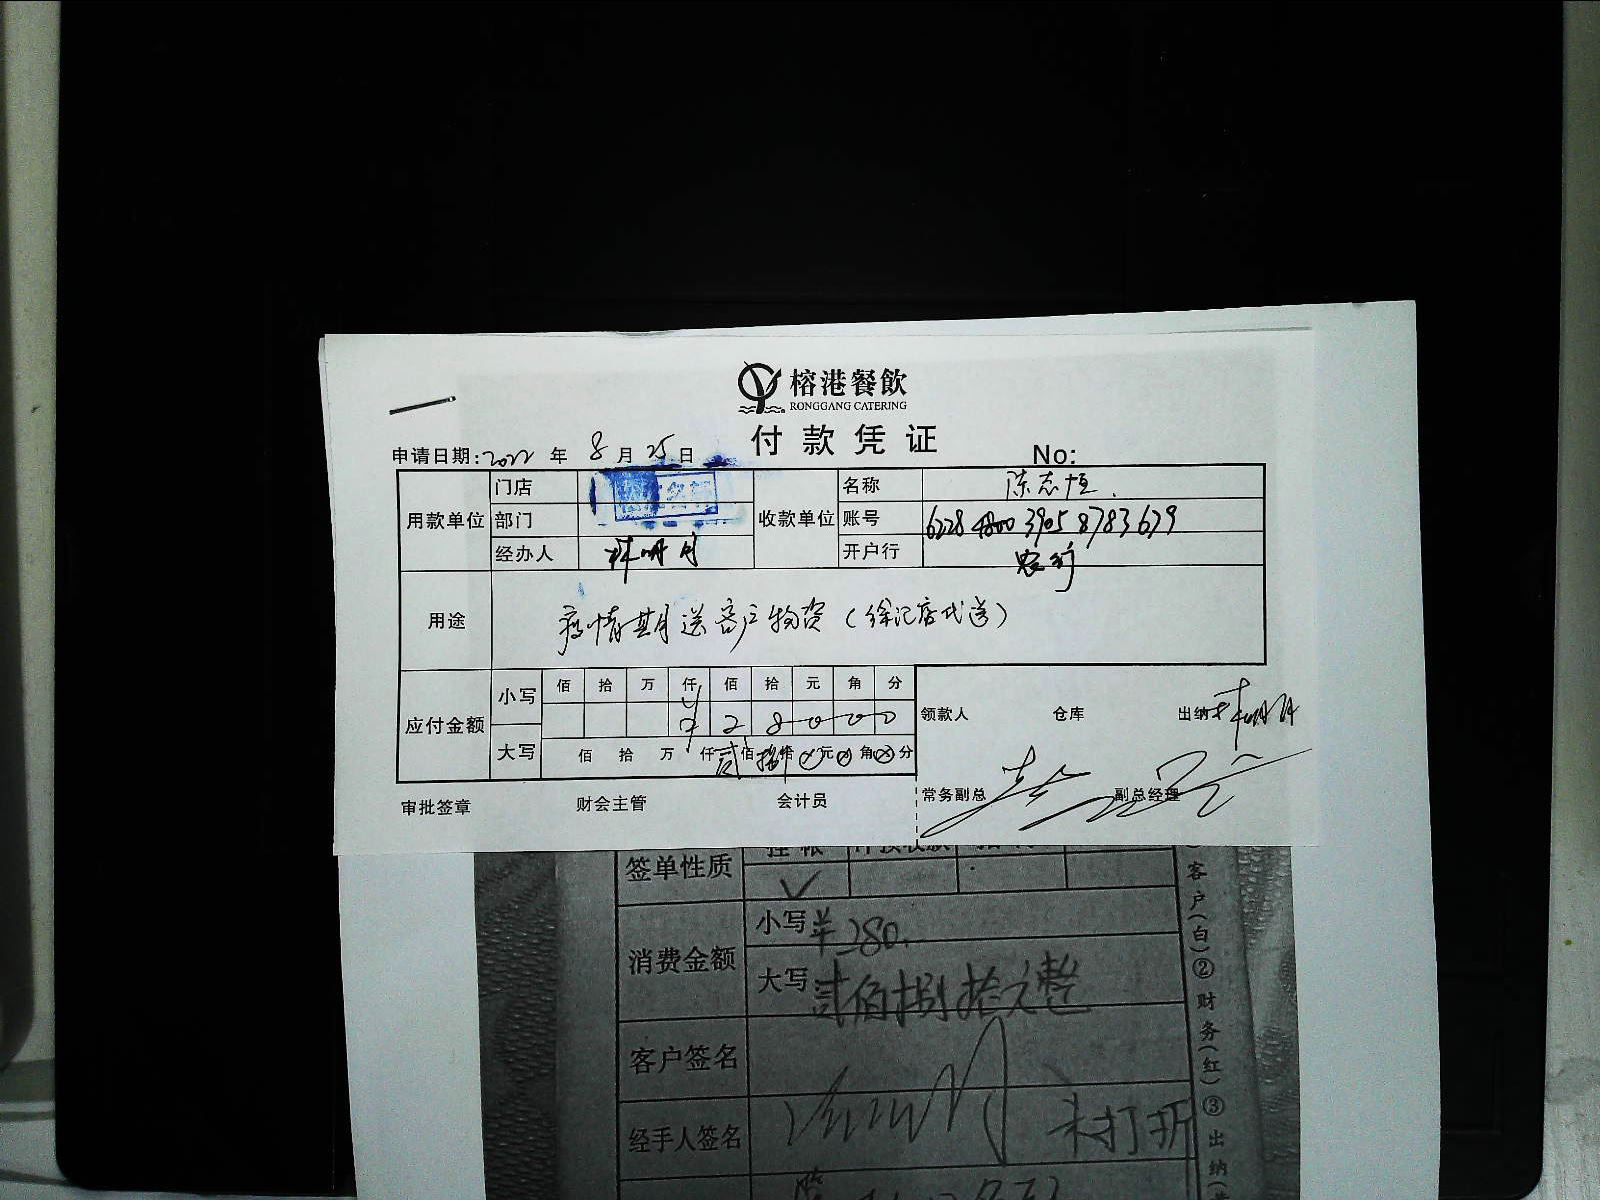 榕港餐飲
RONGGANG CATERING
付款凭证
申请日期:2022年8月25日 No:
用款单位 门店 收款单位 名称 陈志恒
部门 账号 6228 4800 3905 8783 679
经办人 开户行 农行
用途 疫情期送客户物资（徐记店代送）
应付金额 小写 佰 拾 万 仟 佰 拾 元 角 分
¥ 2 8 0 0 0
大写 佰 拾 万 仟 贰佰 捌拾 ⊗元 ⊗角 ⊗分
领款人 仓库 出纳
审批签章 财会主管 会计员 常务副总 副总经理
签单性质
✓
消费金额 小写 ¥280.
大写 贰佰捌拾元整
客户签名
经手人签名 未打折
客户(白)②财务(红)③出纳